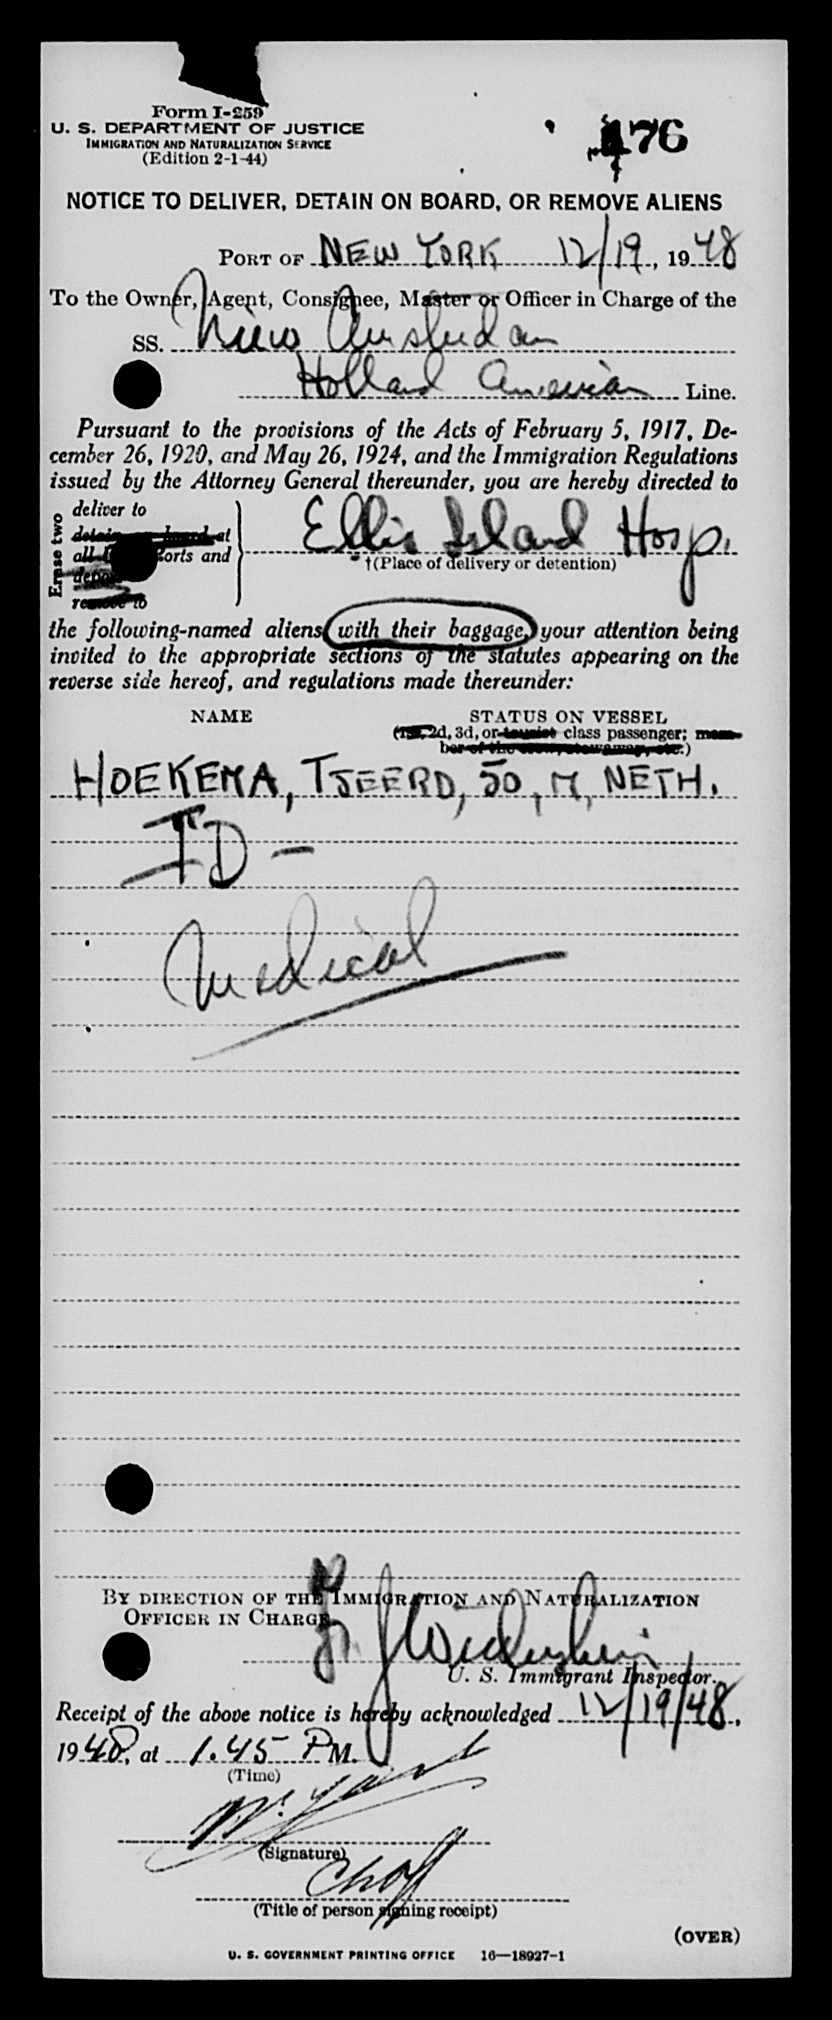 Form I-259
U. S. DEPARTMENT OF JUSTICE
IMMIGRATION AND NATURALIZATION SERVICE
(Edition 2-1-44)
176
NOTICE TO DELIVER, DETAIN ON BOARD, OR REMOVE ALIENS
PORT OF NEW YORK 12/19, 1948
To the Owner, Agent, Consignee, Master or Officer in Charge of the
SS. Nieuw Amsterdam
Holland American Line.
Pursuant to the provisions of the Acts of February 5, 1917, De-
cember 26, 1920, and May 26, 1924, and the Immigration Regulations
issued by the Attorney General thereunder, you are hereby directed to
Erase two
deliver to
detain on board at
all ports and
remove to
Ellis Island Hosp.
†(Place of delivery or detention)
the following-named aliens with their baggage, your attention being
invited to the appropriate sections of the statutes appearing on the
reverse side hereof, and regulations made thereunder:
NAME
STATUS ON VESSEL
(1st, 2d, 3d, or tourist class passenger; mem-
ber of the crew, stowaway, etc.)
HOEKEMA, TJEERD, 50, M, NETH.
TD -
Medical
BY DIRECTION OF THE IMMIGRATION AND NATURALIZATION
OFFICER IN CHARGE
U. S. Immigrant Inspector.
Receipt of the above notice is hereby acknowledged 12/19/48,
1948, at 1.45 PM.
(Time)
(Signature)
(Title of person signing receipt)
(OVER)
U. S. GOVERNMENT PRINTING OFFICE 16—18927-1